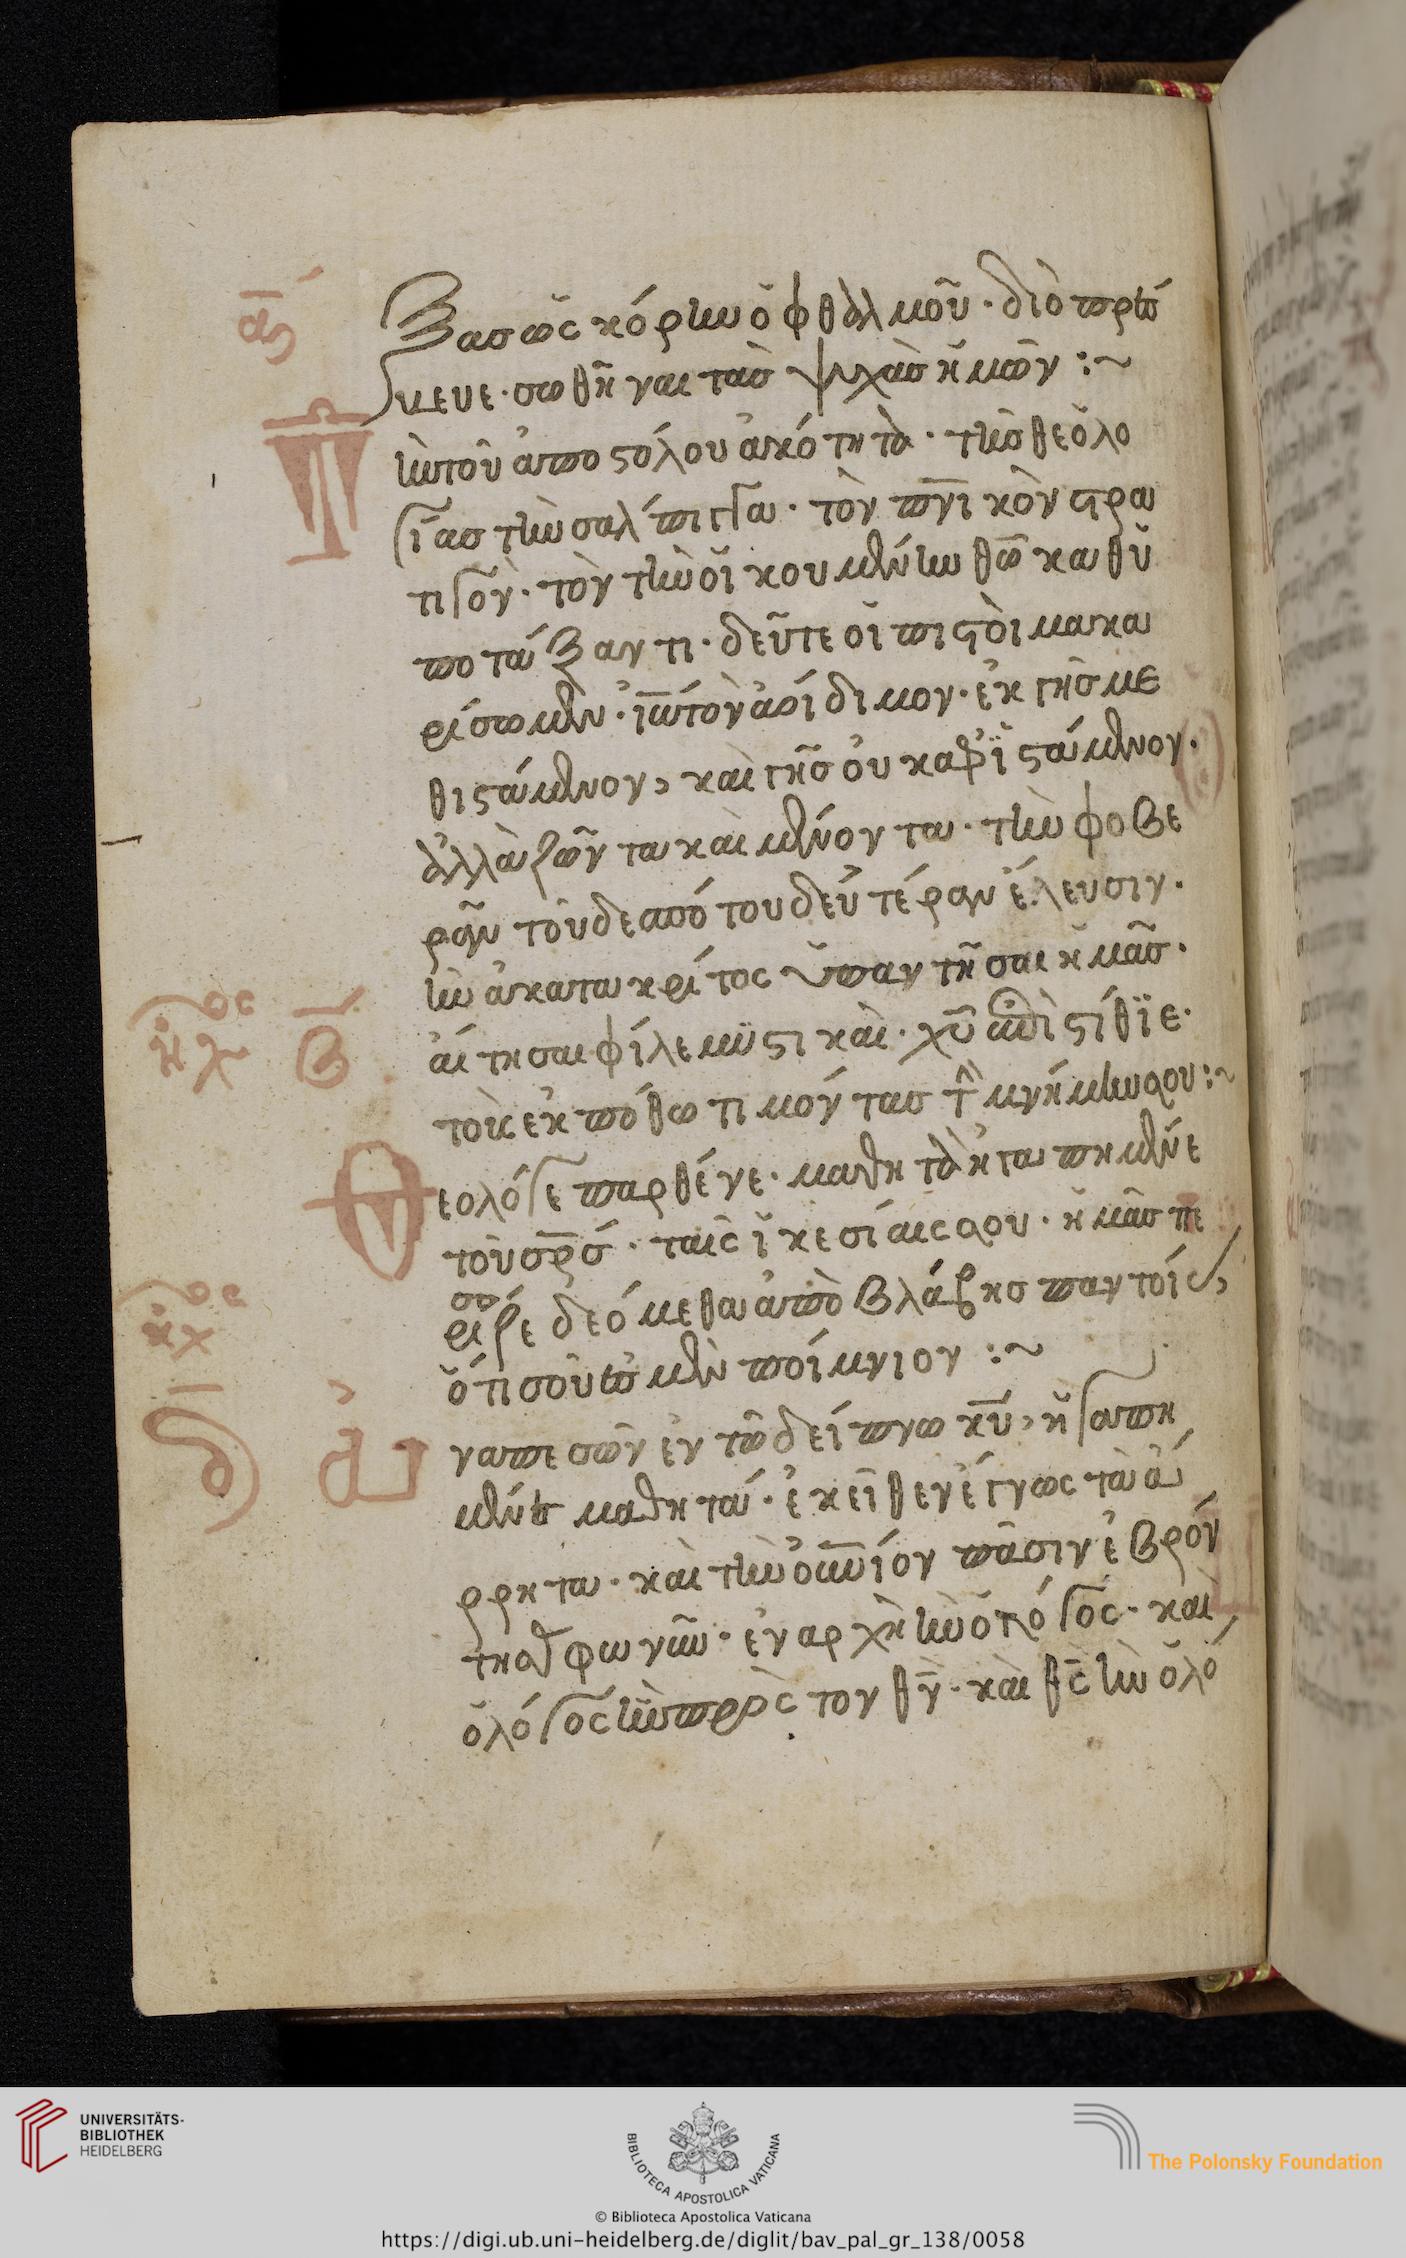 ξας ὡς κόρην ὀφθαλμοῦ· διὸ πρέ
σβευε· σωθῆναι τὰς ψυχὰς ἡμῶν :~
Τὴν τοῦ ἀποστόλου ἀκότητα· τῆς θεολο
γίας τὴν σάλπιγγα· τὸν πν̅ικὸν στρα
τιγὸν· τὸν τὴν οἰκουμένην θῶ καθυ
ποτάξαντι· δεῦτε οἱ πιστοὶ μακα
ρίσωμεν· ἰω̅ τὸν ἀοίδιμον· ἐκ γῆς με
θιστάμενον, καὶ γῆς οὐκ ἀφϊστάμενον·
ἀλλὰ ζῶντα καὶ μένοντα· τὴν φοβε
ρὰν τοῦ δεσπότου δευτέραν ἔλευσιν·
ἣν ἀκατακρίτος ὑπαντῆσαι ἡμᾶς·
αἴτησαι φίλε μϋστικαὶ· χυ̅
τοῖς ἐκ πόθω τιμόντας τ̂ μνήμην σου :~
Θεολόγε παρθένε· μαθητὰ ἠγαπημένε
τοῦ σρ̅ς· ταῖς ἱκεσίαις σου· ἡμᾶς πε
ρισῶζε δεόμεθα ἀπὸ βλάβης παντοίας,
ὅτι σοῦ ἐσμὲν ποίμνιον :~
Ἀναπεσῶν ἐν τῶ δείπνω κυ̅, ἠγαπη
μένε μαθητά· ἐκεῖθεν ἔγνως τὰ ἄ
ρρητα· καὶ τὴν οὐν̅ιον πᾶσιν ἐβρόν
τησας φωνὴν· ἐν ἀρχῆ ἦν ὁ λόγος· καὶ
ὁ λόγος ἦν πρὸς τον θν̅· καὶ θς̅ ἦν ὁ λό
UNIVERSITÄTS-
BIBLIOTHEK
HEIDELBERG
BIBLIOTECA APOSTOLICA VATICANA
The Polonsky Foundation
© Biblioteca Apostolica Vaticana
https://digi.ub.uni-heidelberg.de/diglit/bav_pal_gr_138/0058